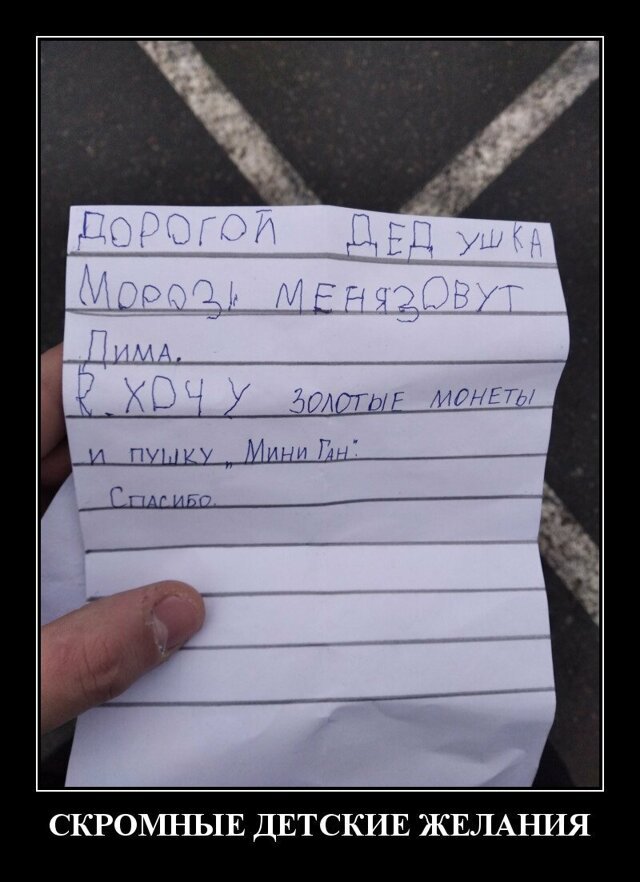 ДОРОГОЙ ДЕД УШКА
МОРОЗ! МЕНЯЗОВУТ
ДИМА.
Я. ХОЧУ ЗОЛОТЫЕ МОНЕТЫ
И ПУШКУ „МИНИ ГАН".
СПАСИБО.
СКРОМНЫЕ ДЕТСКИЕ ЖЕЛАНИЯ